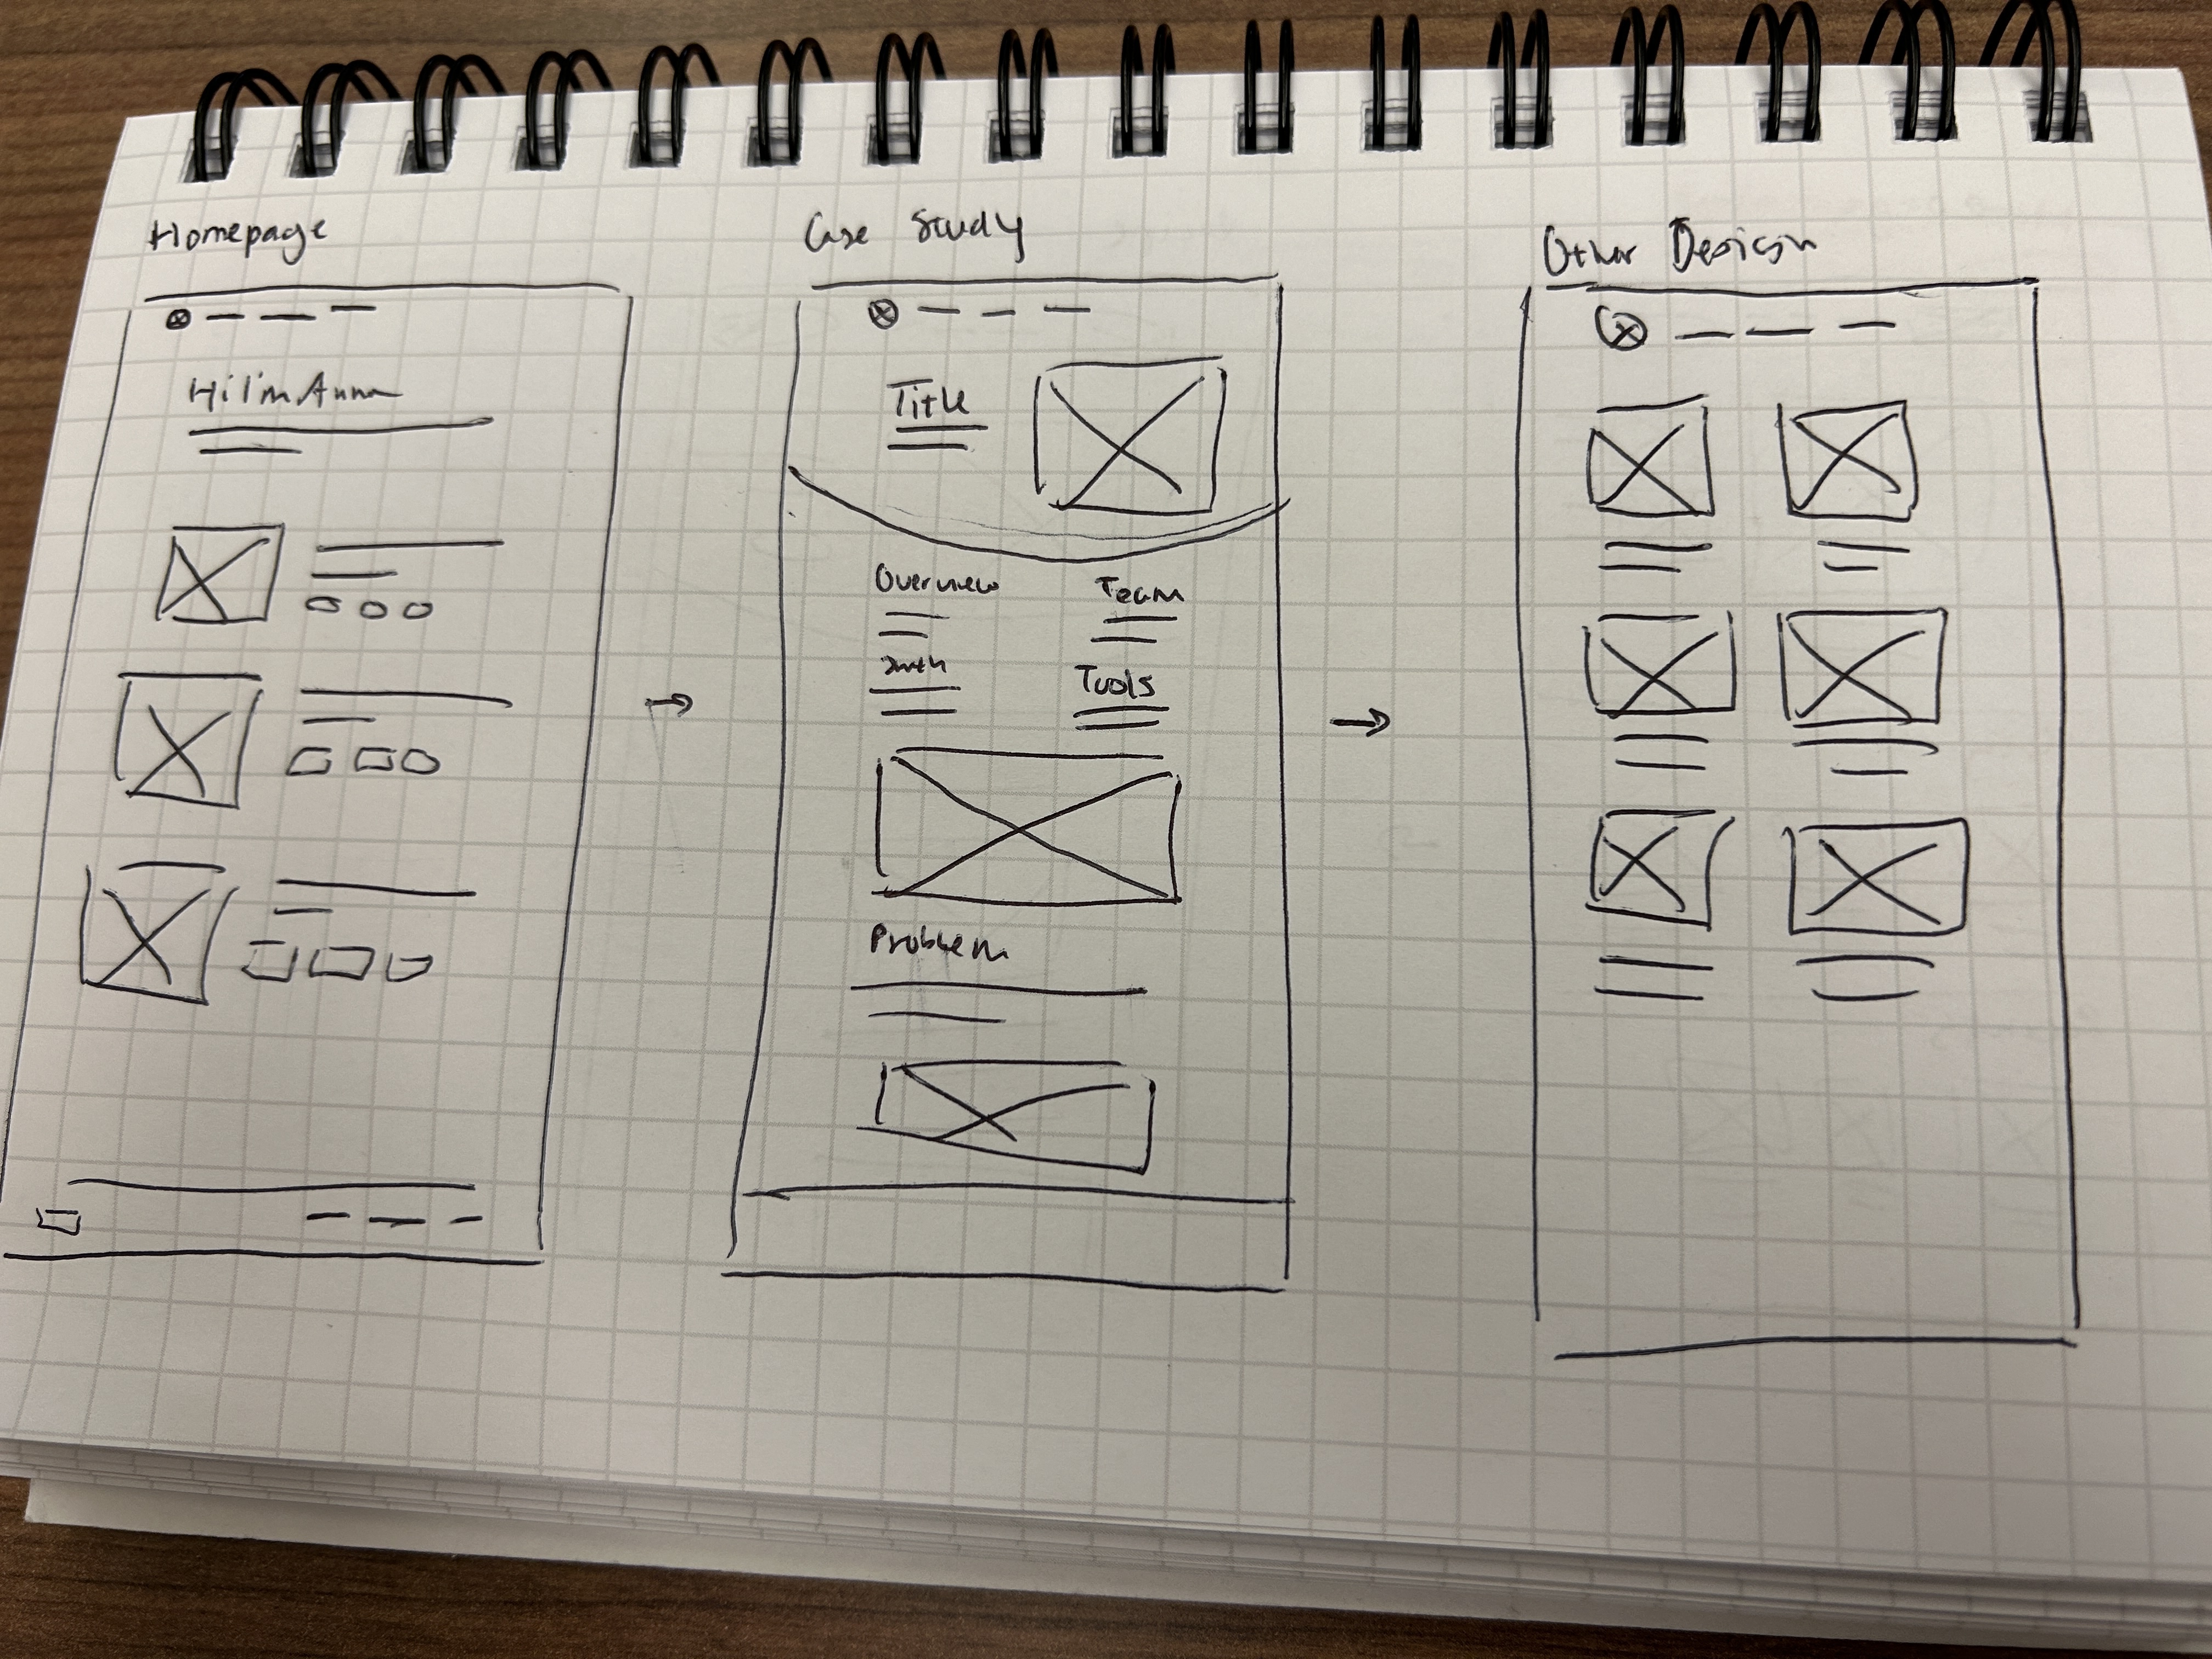 Homepage
Hi I'm Anna
Case Study
Title
Overview
Team
Tools
Problem
Other Design